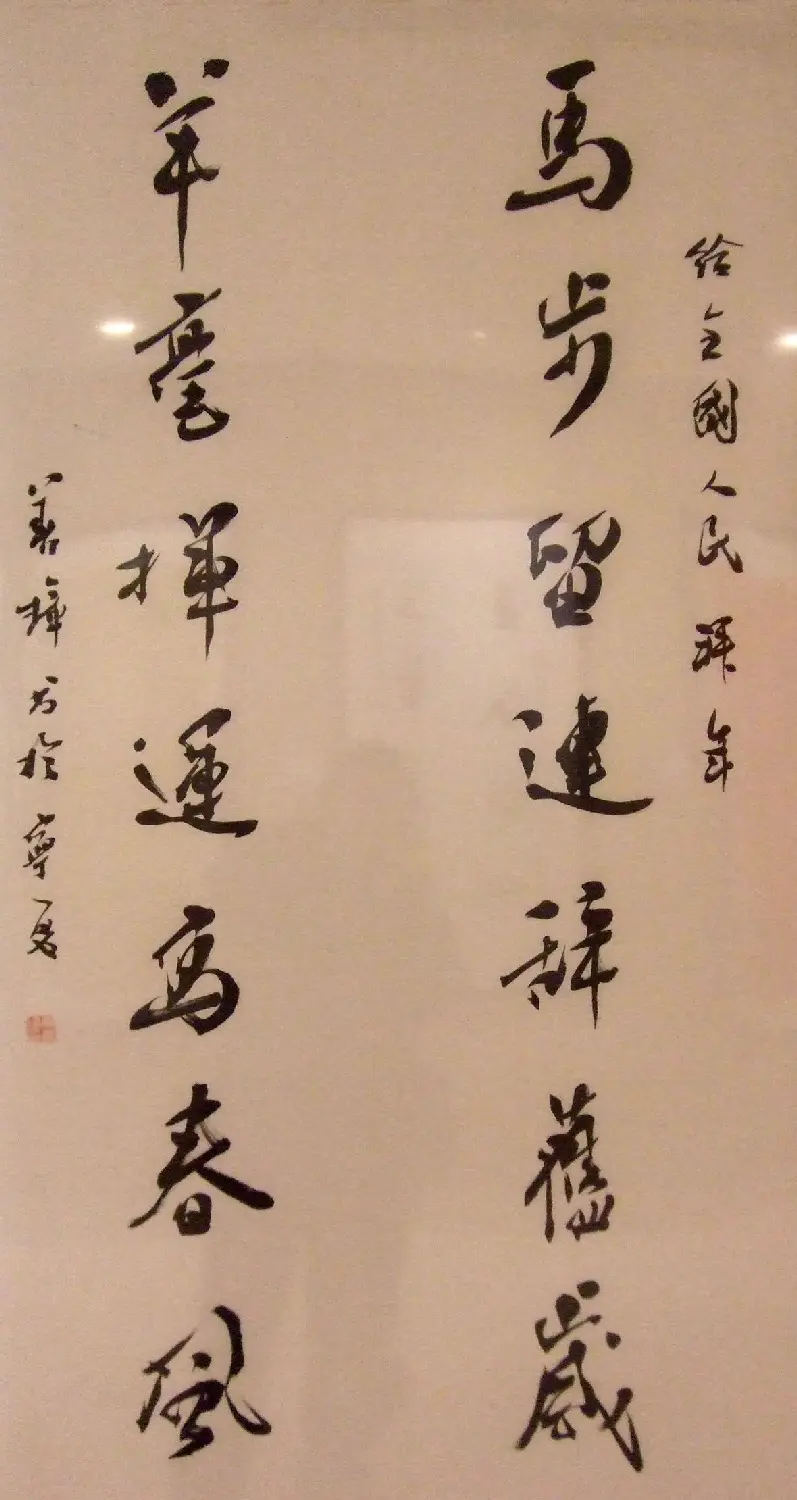 給全國人民拜年
馬步留連辞舊歲
羊毫揮運寫春風
善璋書於寧夏